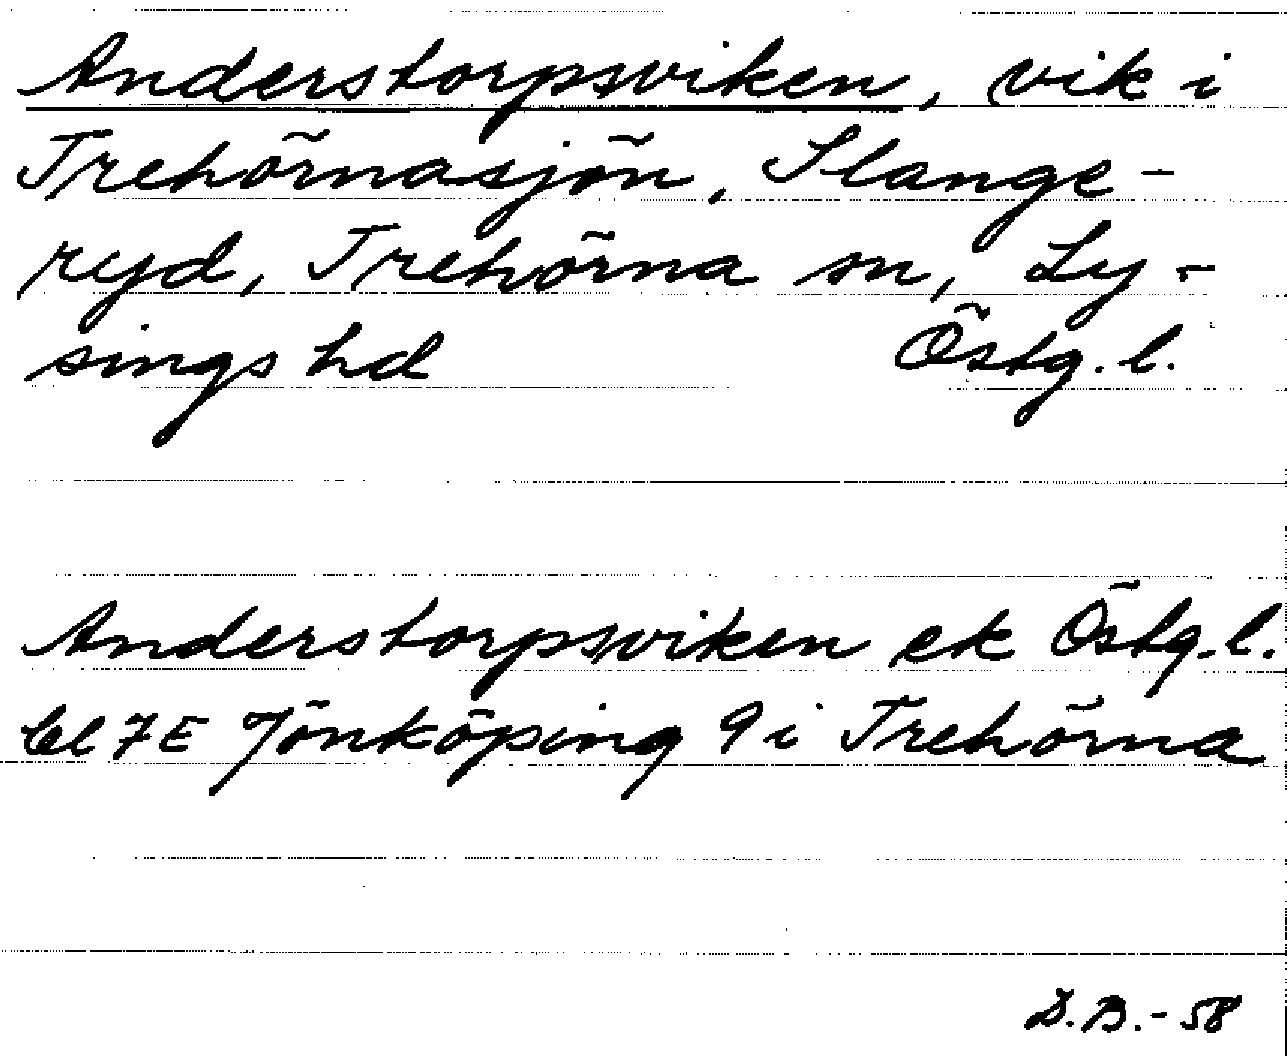 Anderstorpsviken, vik i
Trehörnasjön, Slange-
ryd, Trehörna sn, Ly-
sings hd Östg. l.
Anderstorpsviken ek Östg. l.
bl 7E Jönköping 9 i Trehörna
D.B.-58